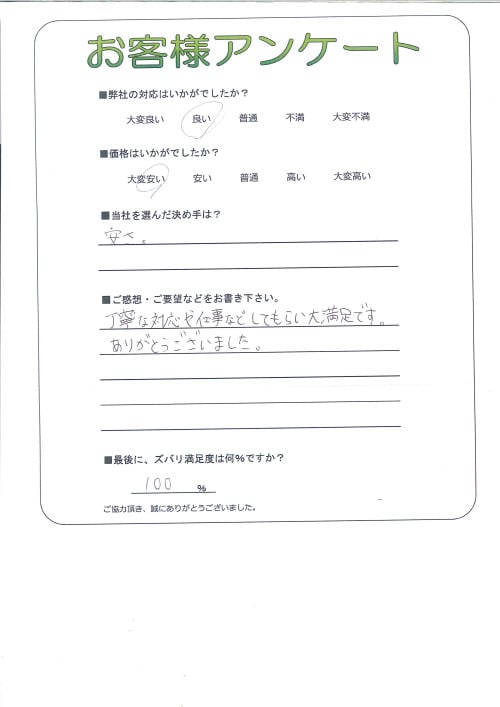 お客様アンケート
■弊社の対応はいかがでしたか？
大変良い 良い 普通 不満 大変不満
■価格はいかがでしたか？
大変安い 安い 普通 高い 大変高い
■当社を選んだ決め手は？
安さ。
■ご感想・ご要望などをお書き下さい。
丁寧な対応や仕事などしてもらい大満足です。
ありがとうございました。
■最後に、ズバリ満足度は何%ですか？
100 %
ご協力頂き、誠にありがとうございました。